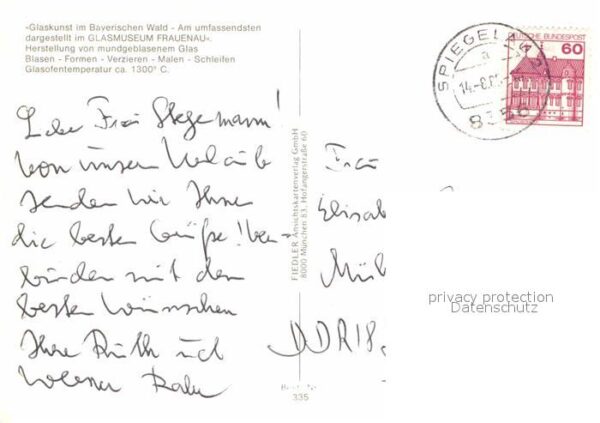 »Glaskunst im Bayerischen Wald - Am umfassendsten
dargestellt im GLASMUSEUM FRAUENAU«.
Herstellung von mundgeblasenem Glas
Blasen - Formen - Verzieren - Malen - Schleifen
Glasofentemperatur ca. 1300° C.
Liebe Frau Stegemann!
Von unserem Urlaub
senden wir Ihnen
die besten Grüße! Ver-
bunden mit den
besten Wünschen
Ihre Ruth und
Werner
FIEDLER Ansichtskartenverlag GmbH
8000 München 83, Hofangerstraße 60
335
SPIEGELAU
8356
DEUTSCHE BUNDESPOST
60
Frau
Elisa
Mül
DDR 18
privacy protection
Datenschutz